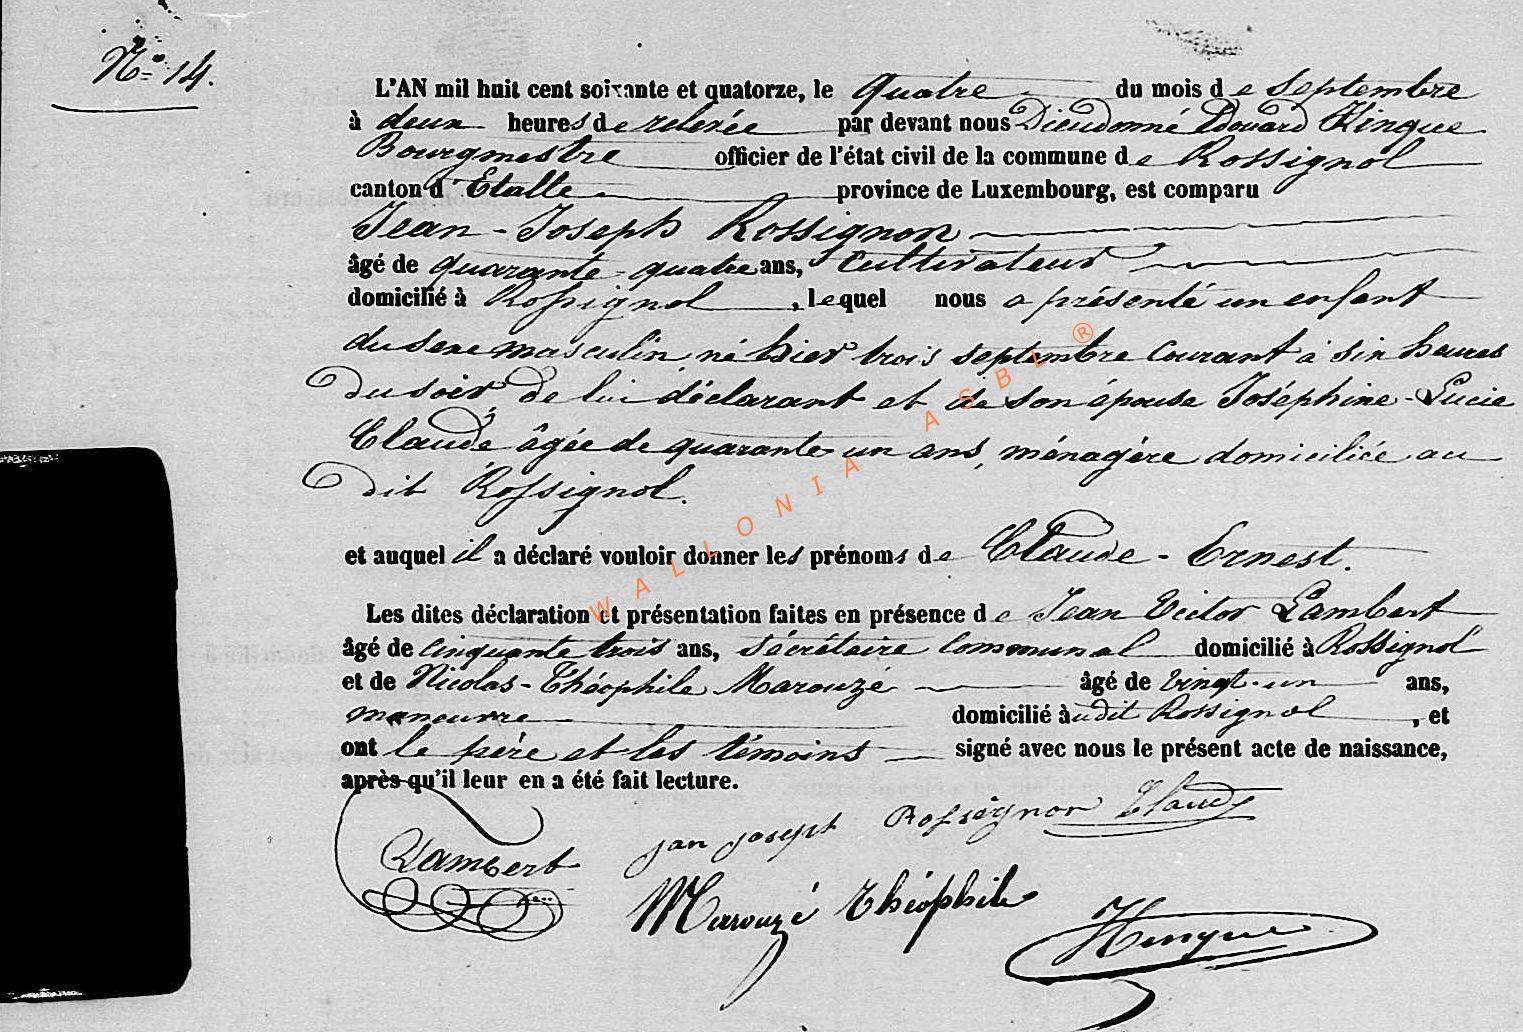 N° 14.
L'AN mil huit cent soixante et quatorze, le quatre du mois de Septembre
à deux heures de relevée par devant nous Dieudonné Edouard Hinque
Bourgmestre officier de l'état civil de la commune de Rossignol
canton d'Etalle province de Luxembourg, est comparu
Jean-Joseph Rossignon
âgé de quarante-quatre ans, Cultivateur
domicilié à Rossignol, lequel nous a présenté un enfant
du sexe masculin né hier trois septembre courant à six heures
du soir de lui déclarant et de son épouse Joséphine-Lucie
Claude âgée de quarante un ans, ménagère domiciliée au
dit Rossignol.
et auquel il a déclaré vouloir donner les prénoms de Claude-Ernest.
Les dites déclaration et présentation faites en présence de Jean Victor Lambert
âgé de cinquante trois ans, sécrétaire communal domicilié à Rossignol
et de Nicolas-Théophile Marouzé âgé de vingt-un ans,
manœuvre domicilié audit Rossignol, et
ont le père et les témoins signé avec nous le présent acte de naissance,
après qu'il leur en a été fait lecture.
jan joseph Rossignon Claude
Lambert
Marouzé théophile
Hinque
WALLONIA ASBL ®